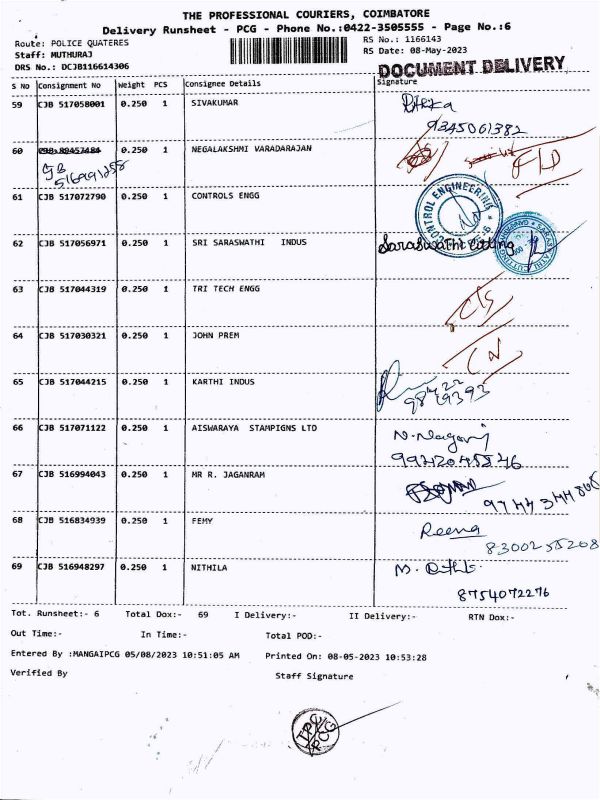 THE PROFESSIONAL COURIERS, COIMBATORE
Delivery Runsheet - PCG - Phone No.:0422-3505555 - Page No.:6
Route: POLICE QUATERES
RS No.: 1166143
Staff: MUTHURAJ
RS Date: 08-May-2023
DRS No.: DCJB116614306
DOCUMENT DELIVERY
S No Consignment No Weight PCS Consignee Details Signature
59 CJB 517058001 0.250 1 SIVAKUMAR
9345061382
60 CJB 89457484 0.250 1 NEGALAKSHMI VARADARAJAN
CJB
516991258
61 CJB 517072790 0.250 1 CONTROLS ENGG
CONTROL ENGINEERING
62 CJB 517056971 0.250 1 SRI SARASWATHI INDUS Saraswathi Cutting
SARASWATHI CUTTING
63 CJB 517044319 0.250 1 TRI TECH ENGG
64 CJB 517030321 0.250 1 JOHN PREM
65 CJB 517044215 0.250 1 KARTHI INDUS
66 CJB 517071122 0.250 1 AISWARAYA STAMPIGNS LTD
N. Nagaraj
67 CJB 516994043 0.250 1 MR R. JAGANRAM
68 CJB 516834939 0.250 1 FEMY Reena
8300255208
69 CJB 516948297 0.250 1 NITHILA
8754072276
Tot. Runsheet:- 6 Total Dox:- 69 I Delivery:- II Delivery:- RTN Dox:-
Out Time:- In Time:- Total POD:-
Entered By :MANGAIPCG 05/08/2023 10:51:05 AM Printed On: 08-05-2023 10:53:28
Verified By Staff Signature
TPC
PCG